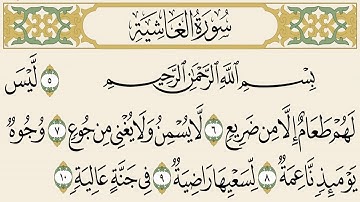 سُورَةُ الغَاشِيَةِ
بِسْمِ اللَّهِ الرَّحْمَٰنِ الرَّحِيمِ ۝٥ لَّيْسَ
لَهُمْ طَعَامٌ إِلَّا مِن ضَرِيعٍ ۝٦ لَّا يُسْمِنُ وَلَا يُغْنِي مِن جُوعٍ ۝٧ وُجُوهٌ
يَوْمَئِذٍ نَّاعِمَةٌ ۝٨ لِّسَعْيِهَا رَاضِيَةٌ ۝٩ فِي جَنَّةٍ عَالِيَةٍ ۝١٠